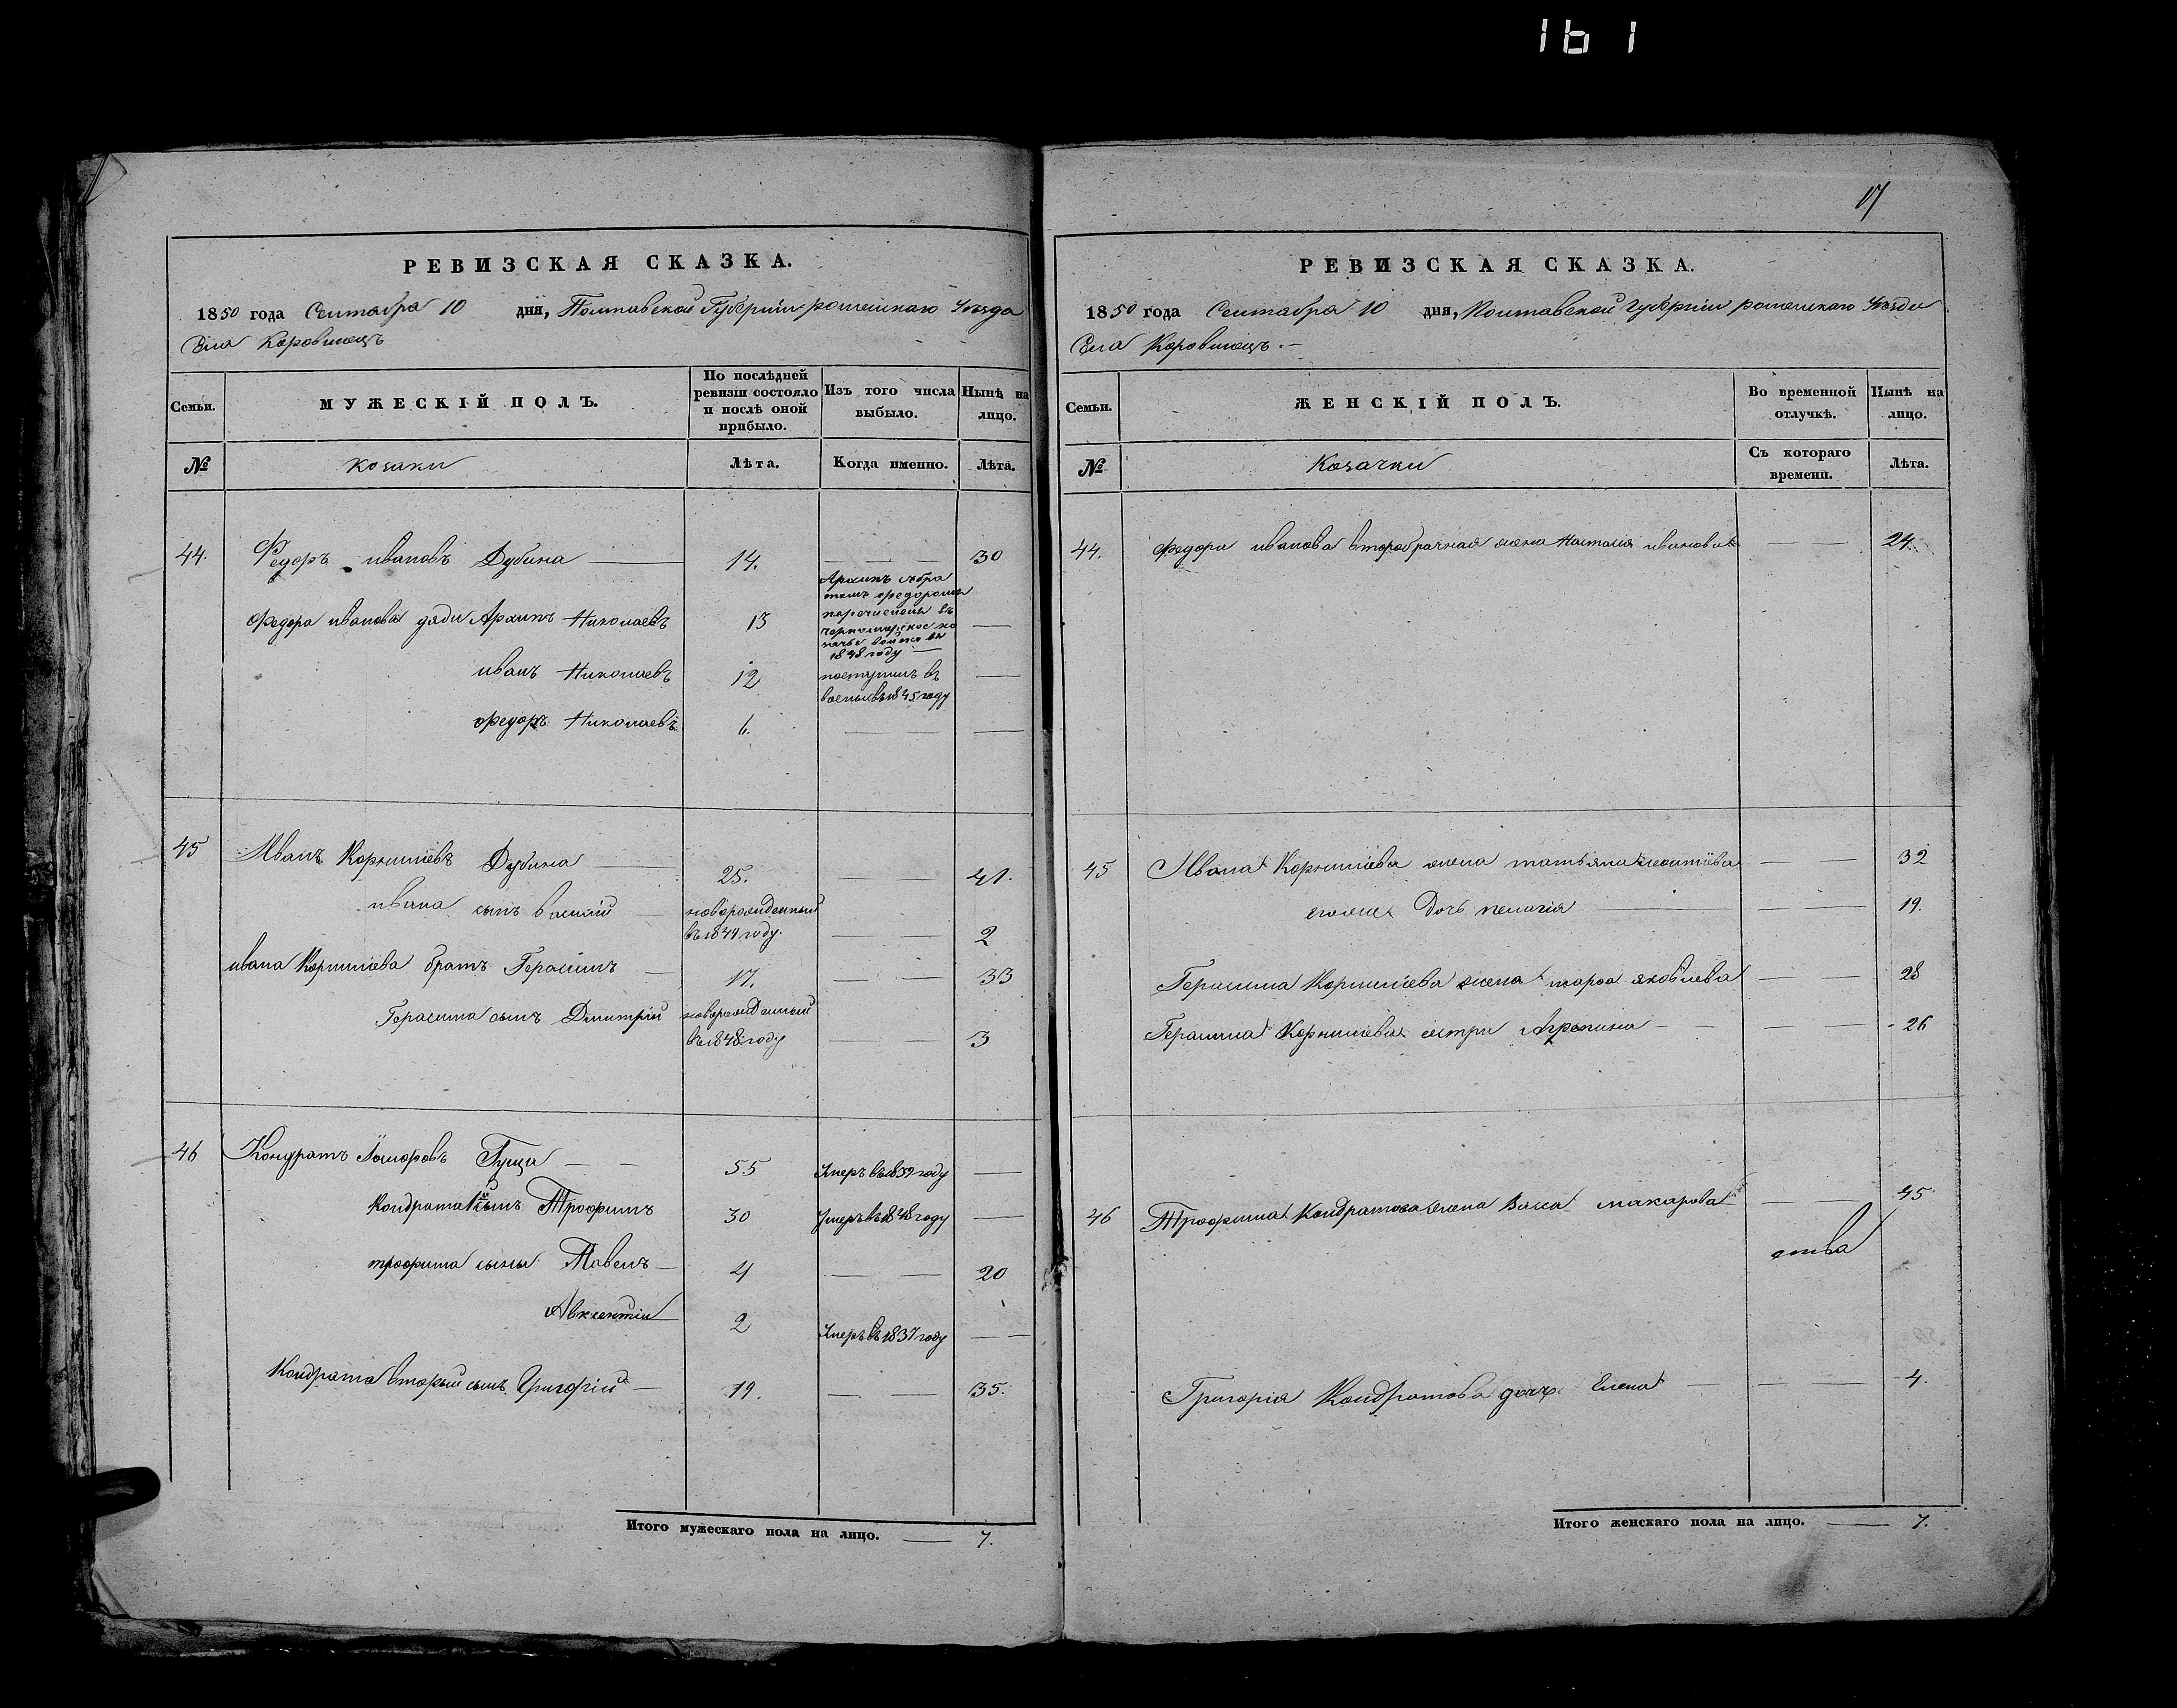 161
17
РЕВИЗСКАЯ СКАЗКА.
1850 года Сентабра 10 дня, Полтавской Губерніи роменскаго Уезда
Села Коровинецъ
Семьи. МУЖЕСКІЙ ПОЛЪ. По послѣдней ревизіи состояло и послѣ оной прибыло. Изъ того числа выбыло. Нынѣ на лицо.
№ козаки Лѣта. Когда именно. Лѣта.
44. Федоръ ивановъ Дубина 14. 30
Федора иванова дяди Архипъ Николаевъ 13 Архипъ збра
томъ федоромъ
перечислены въ
черноморское ко
зачье войско въ
1848 году
иванъ Николаевъ 12 поступилъ въ
въ 1845 году
федоръ Николаевъ 6.
45 Иванъ Корниліевъ Дубина 25. 41.
ивана сынъ василій новорожденный
въ 1849 году. 2
ивана Корниліева братъ Герасимъ 17. 33
Герасима сынъ Дмитрій новорожденный
въ 1848 году 3
46 Кондратъ Гуща 55 Умеръ въ 1839 году
Кондрата 1й сынъ Трофимъ 30 Умеръ въ 1848 году
трофима сыны Павелъ 4 20
Авксентій 2 Умеръ въ 1837 году
Кондрата вторый сынъ Григорій 19. 35.
Итого мужескаго пола на лицо. 7.
РЕВИЗСКАЯ СКАЗКА.
1850 года Сентабра 10 дня, Полтавской Губерніи роменскаго Уезда
Села Коровинецъ.
Семьи. ЖЕНСКІЙ ПОЛЪ. Во временной отлучкѣ. Нынѣ на лицо.
№ Козачки Съ котораго времени. Лѣта.
44. Федора иванова второбрачная жена Наталія иванова 24.
45 Ивана Корниліева жена татьяна леонтіева 32
егоже дочь пелагія 19.
Герасима Корниліева жена марфа яковлева 28
Герасима Корниліева сестра Агрепина 26
46 Трофима Кондратова жена Васса макарова 45
Григорія Кондратова дочь Елена 4.
Итого женскаго пола на лицо. 7.